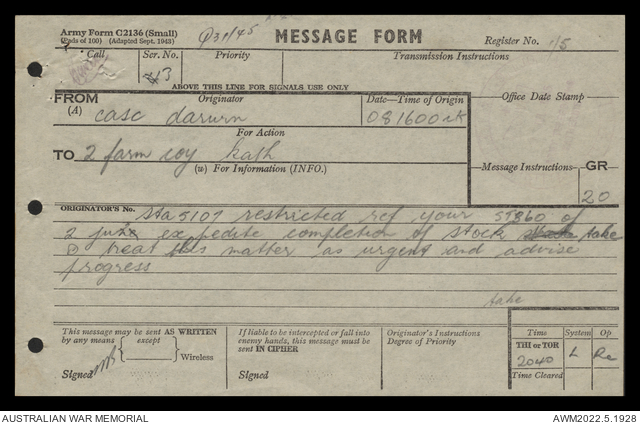 Army Form C2136 (Small)
(Pads of 100) (Adapted Sept. 1943)
MESSAGE FORM
Register No. 1/5
Call
Ser. No.
Priority
Transmission Instructions
43
ABOVE THIS LINE FOR SIGNALS USE ONLY
FROM
Originator
Date—Time of Origin
Office Date Stamp
(A) casc darwin
081600 ik
For Action
TO 2 farm coy kath
Message Instructions
GR
(w) For Information (INFO.)
20
ORIGINATOR'S No. sta5107 restricted ref your ST860 of
2 june expedite completion of stock take
treat this matter as urgent and advise
progress
take
This message may be sent AS WRITTEN
by any means except
Wireless
Signed
If liable to be intercepted or fall into
enemy hands, this message must be
sent IN CIPHER
Signed
Originator's Instructions
Degree of Priority
Time
System
Op
THI or TOR
2040
L
Time Cleared
AUSTRALIAN WAR MEMORIAL
AWM2022.5.1928